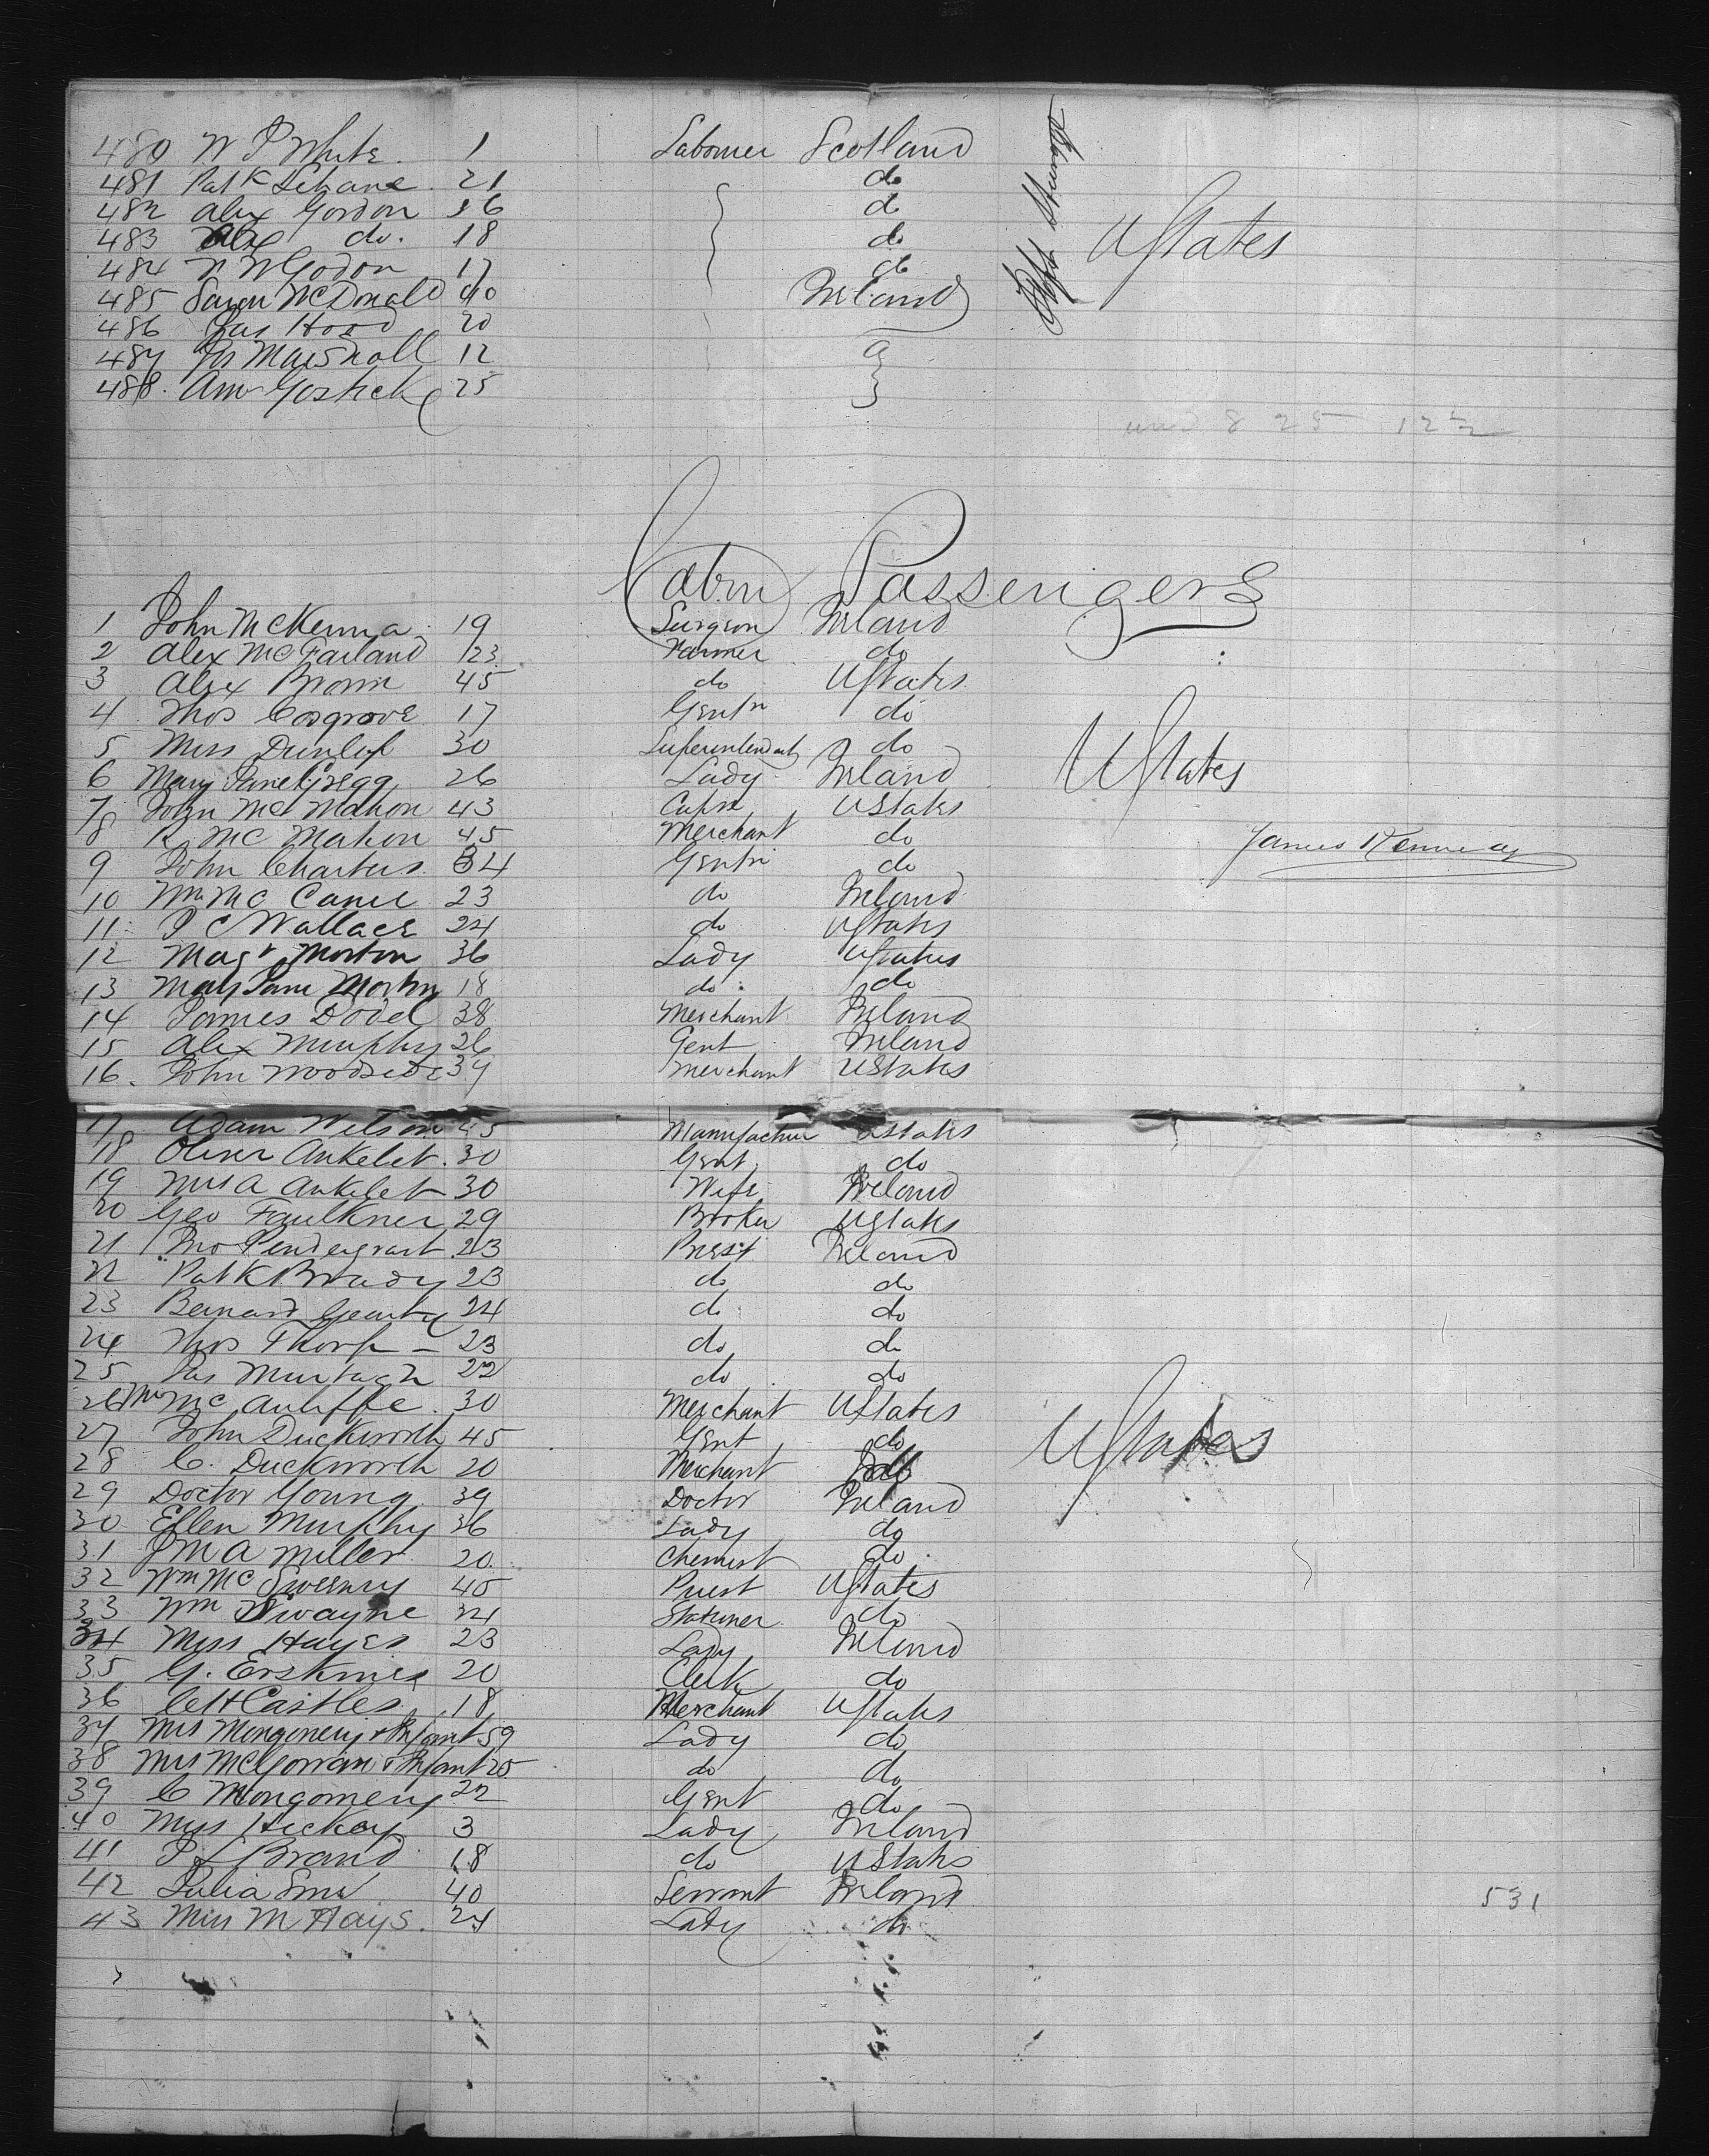 480 W P White. 1 Labourer Scotland
481 Patk Lehane. 21 do
482 Alex Gordon 36 do
483 Alex do. 18 do
484 N W Godon 17 do
485 McDonald 40 Ireland
486 Jas Hood 20
487 Marshall 12
488. Gostick 25
UStates
8 25 12½
Cabin Passengers
1 John McKenna 19 Surgeon Ireland
2 Alex McFarland 23 Farmer do
3 Alex Brown 45 do UStates
4 Thos Cosgrove 17 Gentn do
5 Miss Dunlop 30 Superintendent do
6 Mary Jane Gregg 26 Lady Ireland
UStates
7 John McMahon 43 UStates
8 R McMahon 45 Merchant do
James Kennedy
9 John Charters. 34 Gentn do
10 Wm Mc 23 do Ireland
11 J C Wallace 24 do UStates
12 Magt Morton 36 Lady UStates
13 Mary Jane Morton 18 do do
14 James Dodd 38 Merchant Ireland
15 Alex Murphy 26 Gent Ireland
16. John Woodside 39 Merchant UStates
17 Adam Wilson 45 Manufactur UStates
18 Oliver Ankelet. 30 Gent do
19 Mrs A Ankelet 30 Wife Ireland
20 Geo Faulkner 29 Broker UStates
21 Jno Pendergrast 23 Priest Ireland
22 Patk Brady 23 do do
23 Bernard Gearty 24 do do
24 Thos Thorp - 23 do do
25 Jas Murtagh 22 do do
26 Mr McAuliffe. 30 Merchant UStates
27 John Duckworth 45 Gent do
UStates
28 C. Duckworth 20 Merchant do
29 Doctor Young 39 Doctor Ireland
30 Ellen Murphy 36 Lady do
31 J M A Miller 20. Chemist do
32 Wm McSweeny 40 Priest UStates
33 Wm Swayne 34 Stationer do
34 Miss Hayes 23 Lady Ireland
35 G. Erskine 20 Clerk do
36 C H Castles 18 Merchant UStates
37 Mrs Mongomery & Infant 59 Lady do
38 Mrs McGowan & Infant 25 do do
39 C Mongomery 22 Gent do
40 Miss Hickey 3 Lady Ireland
41 Brand 18 do UStates
42 Julia 40 Servant Ireland
531
43 Miss M Hays. 24 Lady do